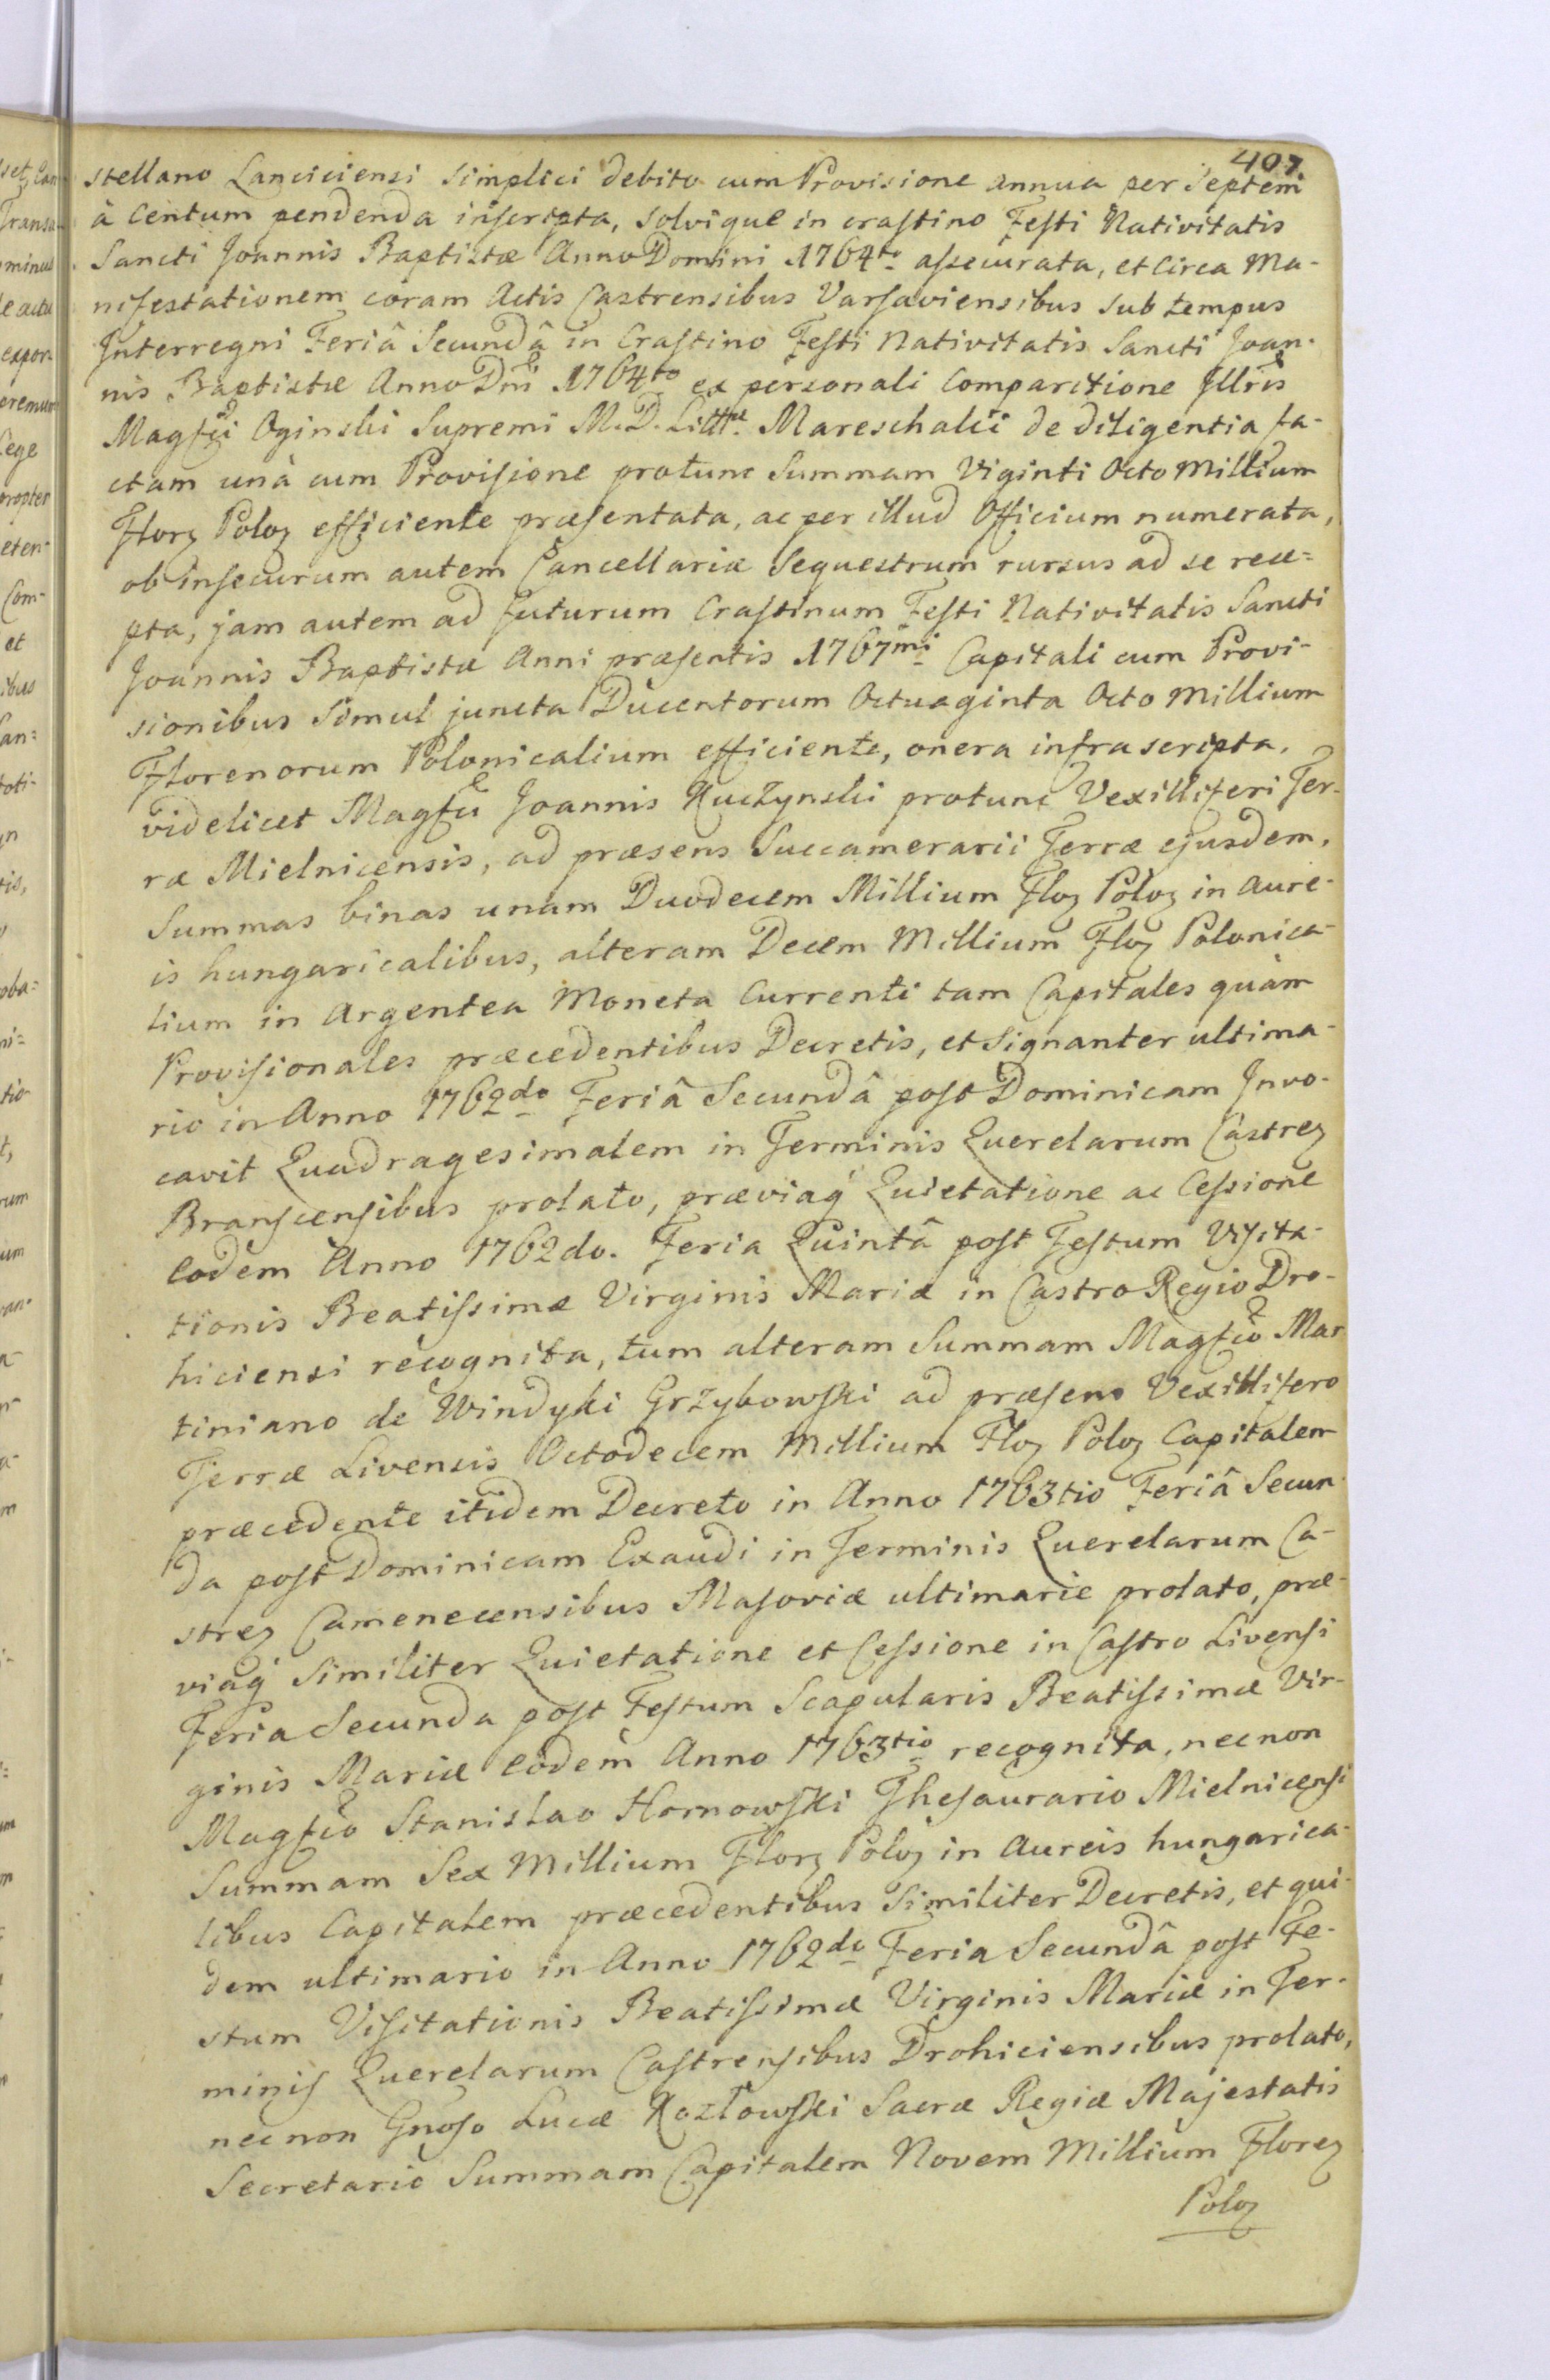 407
stellano Lanciciensi simplici debito cum Provisione annua per Septem
à Centum pendenda inscripta, solvique in crastino Festi Nativitatis
Sancti Joannis Baptistæ Anno Domini 1764to assecurata, et circa Ma-
nifestationem coram Actis Castrensibus Varsaviensibus sub tempus
Interregni Feriâ Secundâ in Crastino Festi Nativitatis Sancti Joan-
nis Baptistæ Anno Dni 1764to ex personali Comparitione Illris
Magfci Oginski Supremi M. D. Littæ Mareschalci de diligentia fa-
ctam unà cum Provisione protunc Summam Viginti Octo Millium
Florz Poloz efficiente præsentata, ac per illud Officium numerata,
ob insecurum autem Cancellariæ Sequestrum rursus ad se rece=
pta, jam autem ad futurum Crastinum Festi Nativitatis Sancti
Joannis Baptistæ Anni præsentis 1767mi Capitali cum Provi-
sionibus simul juncta Ducentorum Octuaginta Octo Millium
Florenorum Polonicalium efficiente, onera infrascripta,
videlicet Magfci Joannis Kuczynski protunc Vexilliferi Ter-
ræ Mielnicensis, ad præsens Succamerarii Terræ ejusdem,
Summas binas unam Duodecem Millium Floz Poloz in Aure-
is hungaricalibus, alteram Decem Millium Floz Polonica-
lium in Argentea Moneta Currenti tam Capitales quàm
Provisionales præcedentibus Decretis, et signanter ultima-
rio in Anno 1762do Feriâ Secundâ post Dominicam Invo-
cavit Quadragesimalem in Terminis Querelarum Castrez
Branscensibus prolato, præviaq́ Quietatione ac Cessione
eodem Anno 1762do. Feria Quintâ post Festum Visita-
tionis Beatissimæ Virginis Mariæ in Castro Regio Dro-
hiciensi recognita, tum alteram Summam Magfco Mar
tiniano de Windyki Grzybowski ad præsens Vexillifero
Terræ Livensis Octodecem Millium Floz Poloz Capitalem
præcedente itidem Decreto in Anno 1763tio Feriâ Secun
da post Dominicam Exaudi in Terminis Querelarum Ca-
strez Camenecensibus Masoviæ ultimarie prolato, præ-
viaq́ similiter Quietatione et Cessione in Castro Livensi
Feria Secunda post Festum Scapularis Beatissimæ Vir-
ginis Mariæ eodem Anno 1763tio recognita, necnon
Magfco Stanislao Hornowski Thesaurario Mielnicensi
Summam Sex Millium Florz Poloz in Aureis hungarica-
libus Capitalem præcedentibus similiter Decretis, et qui-
dem ultimario in Anno 1762do Feria Secundâ post Fe-
stum Visitationis Beatissimæ Virginis Mariæ in Ter-
minis Querelarum Castrensibus Drohiciensibus prolato,
necnon Gnoso Lucæ Kozłowski Sacræ Regiæ Majestatis
Secretario Summam Capitalem Novem Millium Florez
Poloz